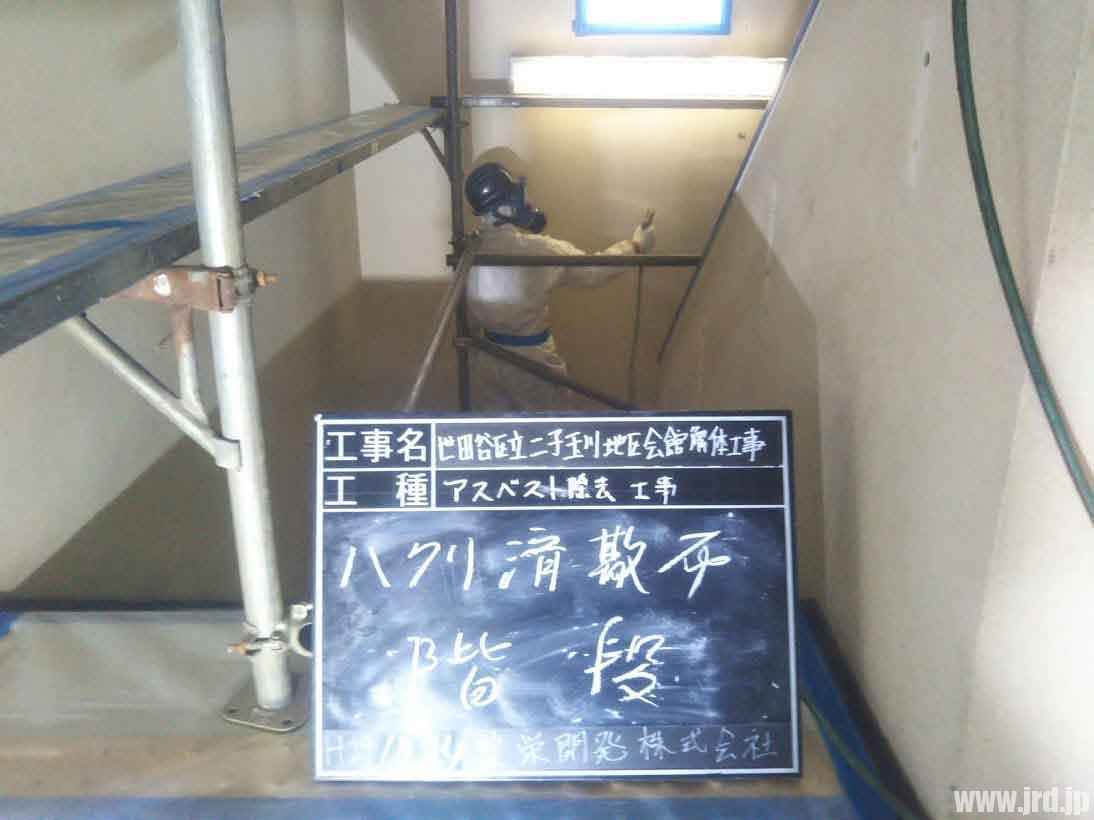 工事名 世田谷区立二子玉川地区会館解体工事
工種 アスベスト除去 工事
ハクリ済散布
階段
栄開発株式会社
www.jrd.jp